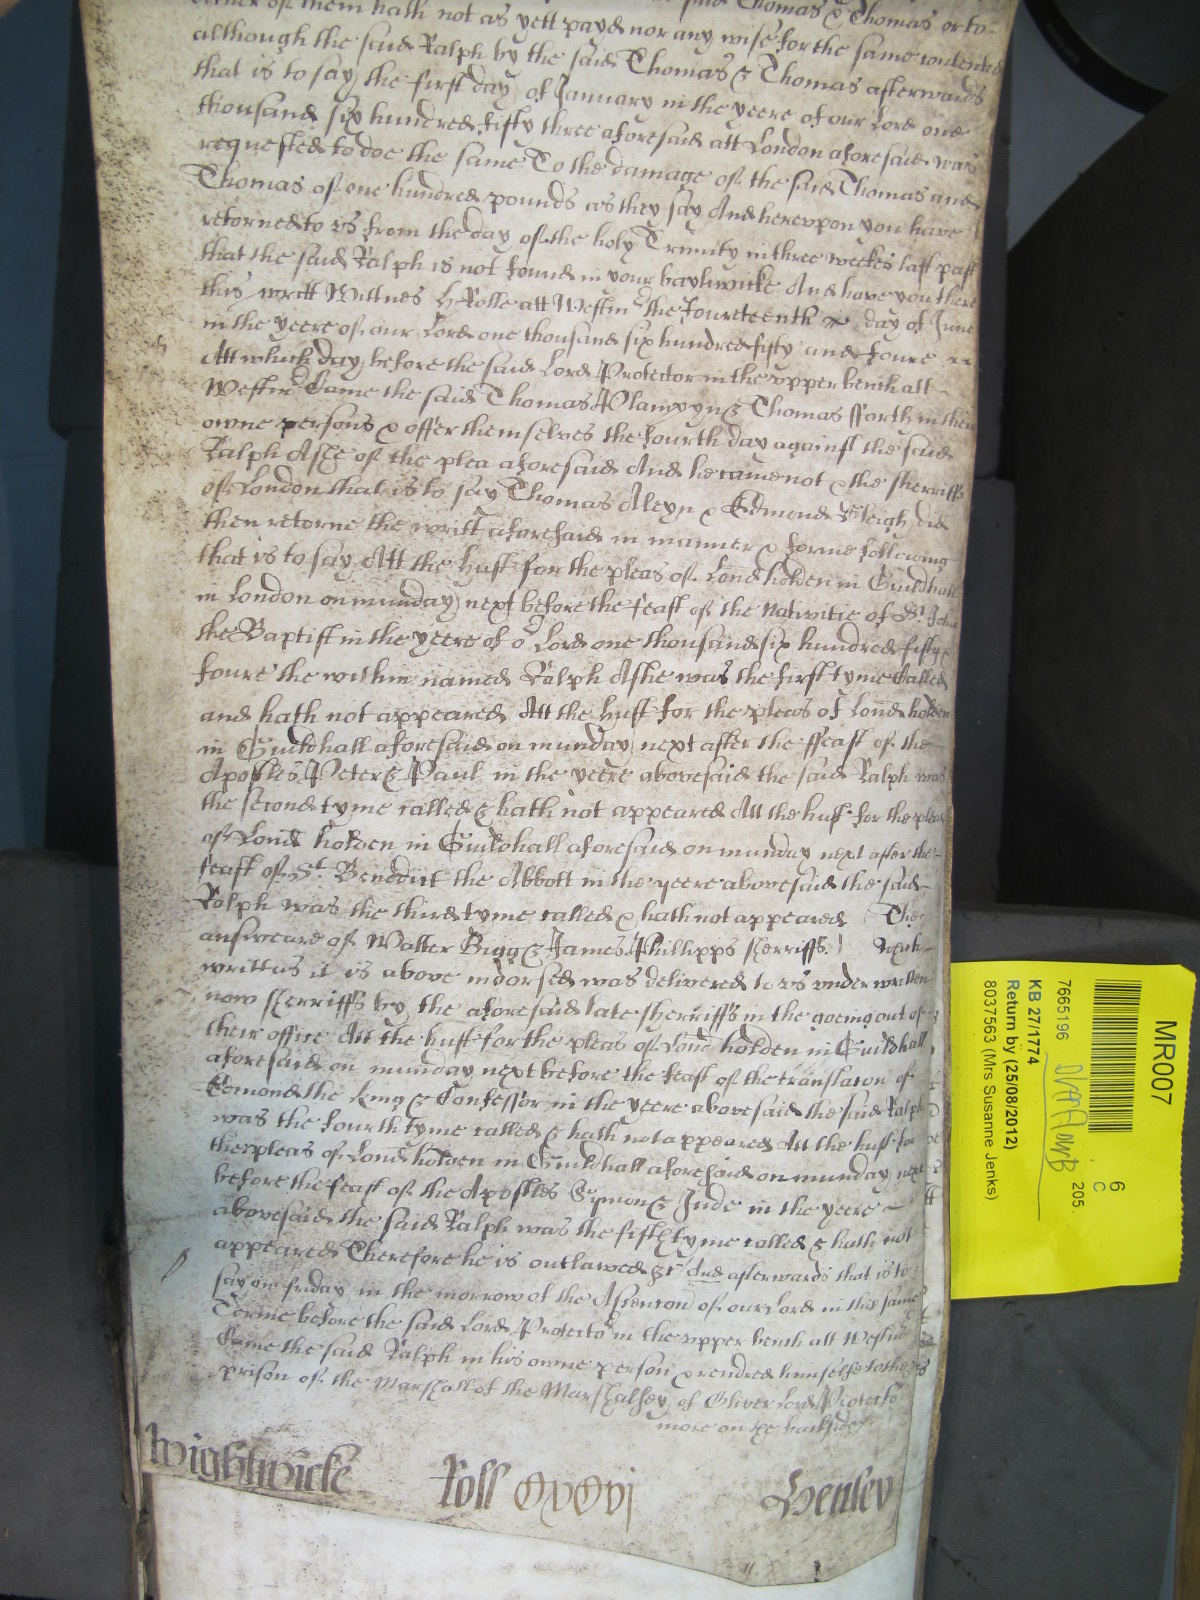 either of them hath not as yett payd nor any wise for the same contented
although the said Ralph by the said Thomas & Thomas afterwards
that is to say the first day of January in the yeere of our Lord one
thousand six hundred fifty three aforesaid att London aforesaid was
requested to doe the same To the damage of the said Thomas and
Thomas of one hundred pounds as they say And hereupon you have
retorned to us from the day of the holy Trinity in three weekes last past
that the said Ralph is not found in your bayliwicke And have you there
this writt Wittnes H Rolle att Westmr the fourteenth day of June
in the yeere of our Lord one thousand six hundred fifty and foure
Att which day before the said Lord Protector in the upper bench att
Westmr Came the said Thomas & Thomas fforth in their
owne persons & offer themselves the fourth day against the said
Ralph Ashe of the plea aforesaid And he came not & the sherriffs
of London that is to say Thomas Aleyn & Edmond Sleigh did
then retorne the writt aforesaid in manner & forme following
that is to say Att the hust for the pleas of Lond holden in Guildhall
in London on munday next before the feast of the Nativitie of St John
the Baptist in the yeere of or Lord one thousand six hundred fifty &
foure the within named Ralph Ashe was the first tyme Called
and hath not appeared Att the hust for the pleas of Lond holden
in Guildhall aforesaid on munday next after the ffeast of the
Apostles Peter & Paul in the yeere abovesaid the said Ralph was
the second tyme called & hath not appeared Att the hust for the pleas
of Lond holden in Guildhall aforesaid on munday next after the
feast of St Benedict the Abbott in the yeere abovesaid the said
Ralph was the third tyme called & hath not appeared The
answeare of Walter Bigg & James Phillipps sherriffs
writt as it is above indorsed was delivered to us under written
now sherriffs by the aforesaid late sherriffs in the goeing out of
their office Att the hust for the pleas of Lond holden in Guildhall
aforesaid on munday next before the feast of the translacon of
Edmond the king & Confessor in the yeere abovesaid the said Ralph
was the fourth tyme called & hath not appeared Att the hust for
the pleas of Lond holden in Guildhall aforesaid on munday next
before the feast of the Apostles Symon & Jude in the yeere
abovesaid the said Ralph was the fifth tyme called & hath not
appeared Therefore he is outlawed &c And afterwards that is to
say on friday in the morrow of the Ascencon of our Lord in this same
Terme before the said Lord Protector in the upper bench att Westmr
Came the said Ralph in his owne person & rendred himselfe to the
prison of the Marshall of the Marshalsey of Oliver Lord Protector
more on the backside
Wightwicke Roll Henley
MR007
6
C
205
7665196
KB 27/1774
Return by (25/08/2012)
8037563 (Mrs Susanne Jenks)